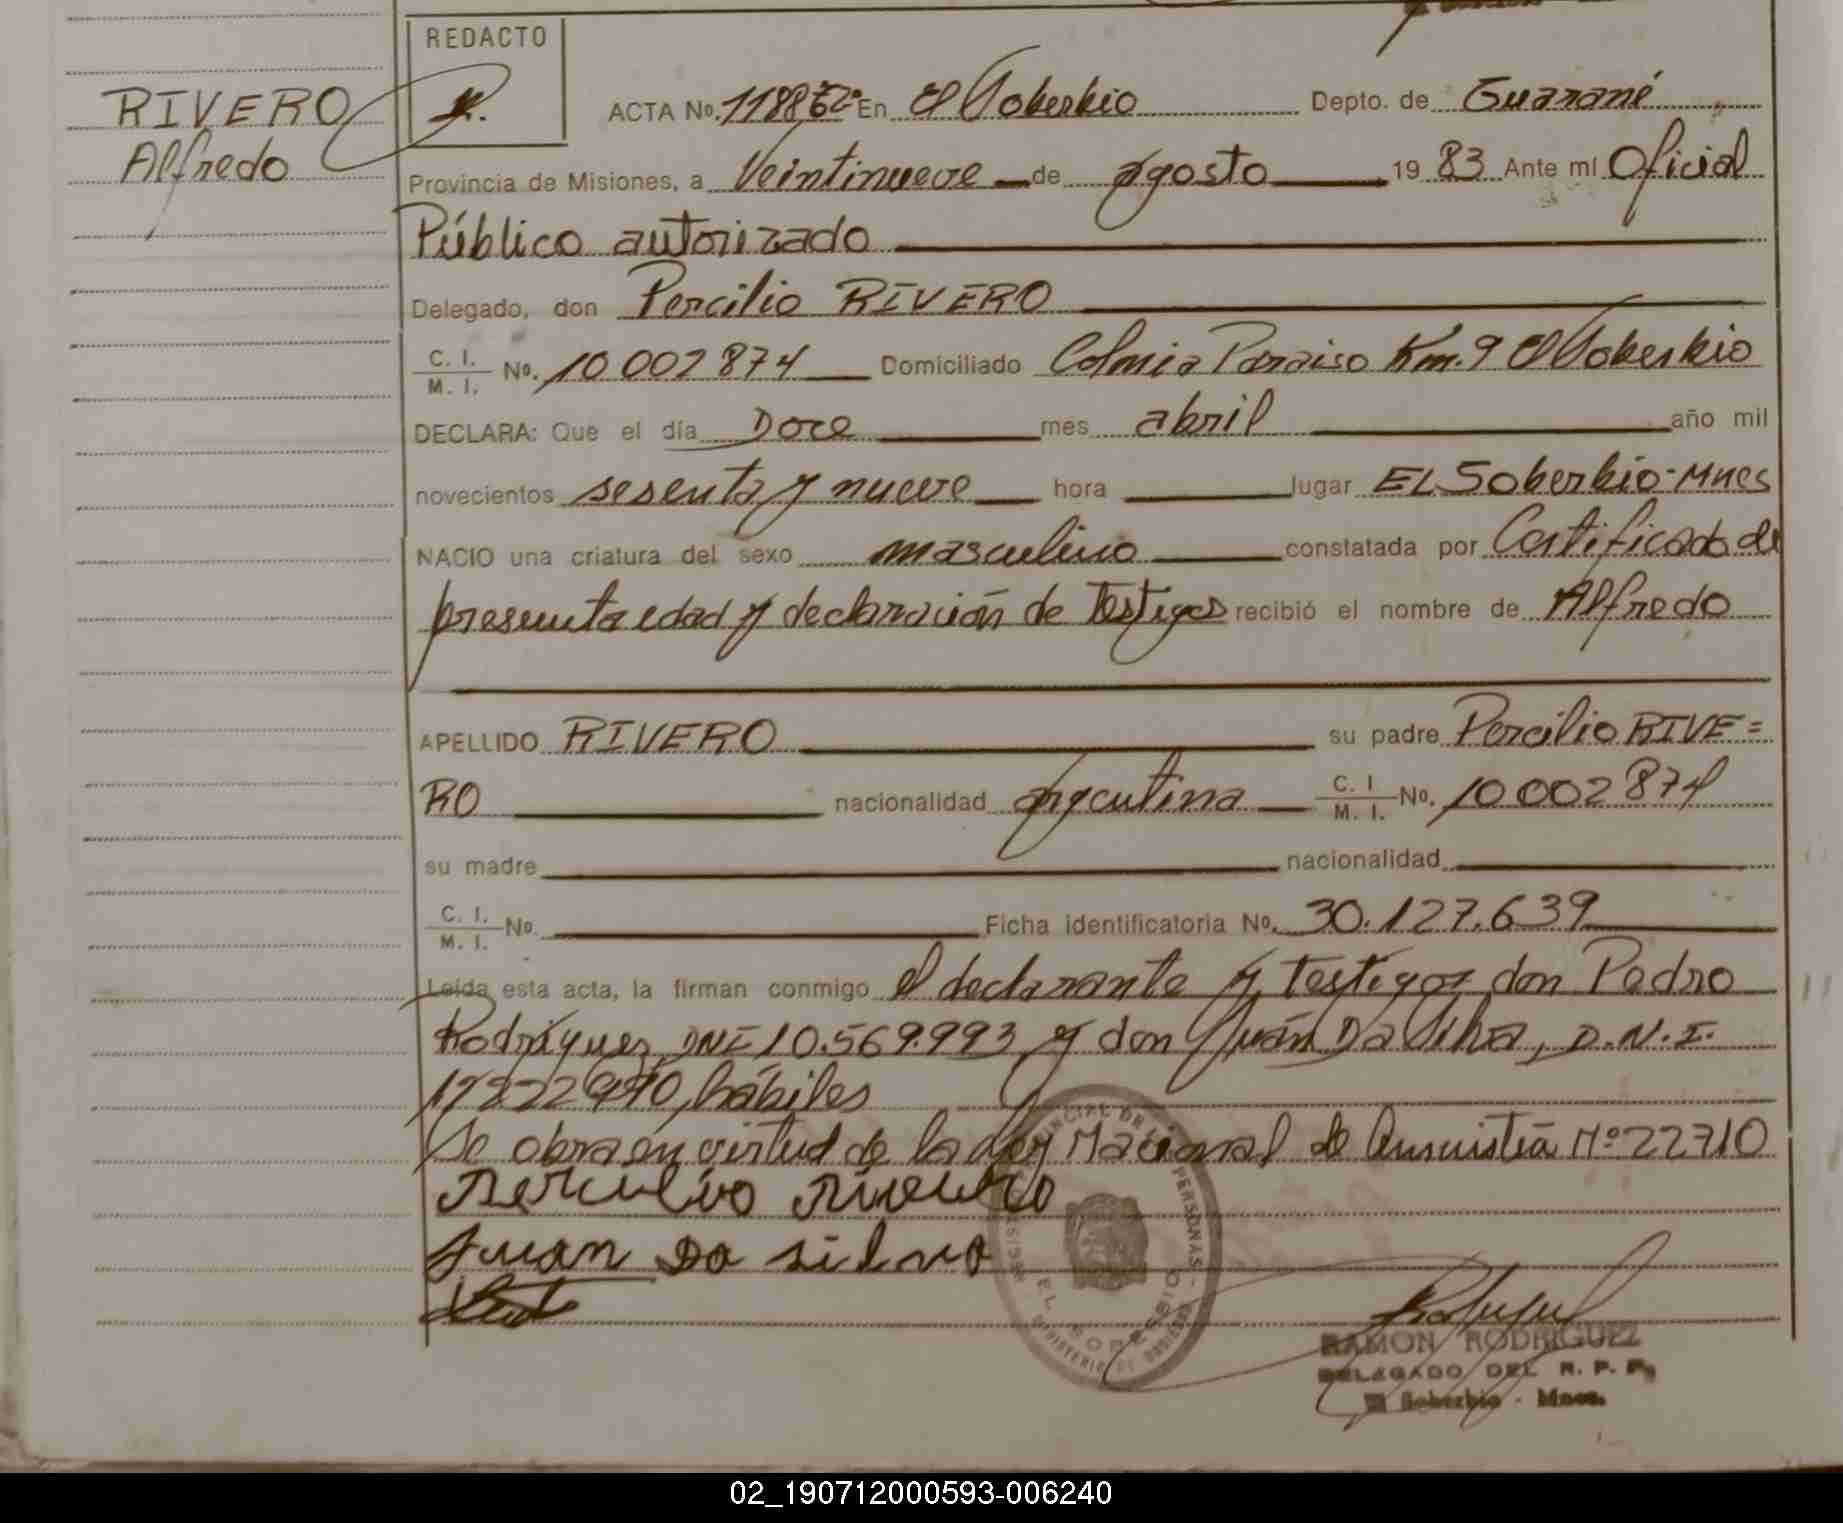 REDACTO
RIVERO
Alfredo
ACTA No. En El Soberbio Depto. de Guaraní
Provincia de Misiones, a Veintinueve de agosto 19 83 Ante mí Oficial
Público autorizado
Delegado, don Percilio RIVERO
C. I. / M. I. No. 10 002 874 Domiciliado Colonia Paraiso Km. 9 El Soberbio
DECLARA: Que el día Doce mes abril año mil
novecientos sesenta y nueve hora lugar EL Soberbio-Mnes
NACIO una criatura del sexo masculino constatada por Certificado de
presunta edad y declaración de Testigos recibió el nombre de Alfredo
APELLIDO RIVERO su padre Percilio RIVE=
RO nacionalidad argentina C. I / M. I. No. 10 002 874
su madre nacionalidad
C. I. / M. I. No. Ficha identificatoria No. 30.127.639
Leída esta acta, la firman conmigo el declarante y Testigos don Pedro
Rodríguez DNI 10.569.993 y don Juán Da Silva, D.N.I.
hábiles
Se obra en virtud de la Ley Nacional de Amnistía Nº 22710
Juan Da silva
PERSONAS - EL SOBERBIO
RAMON RODRIGUEZ
DELEGADO DEL R. P. P.
El Soberbio - Mnes.
02_190712000593-006240